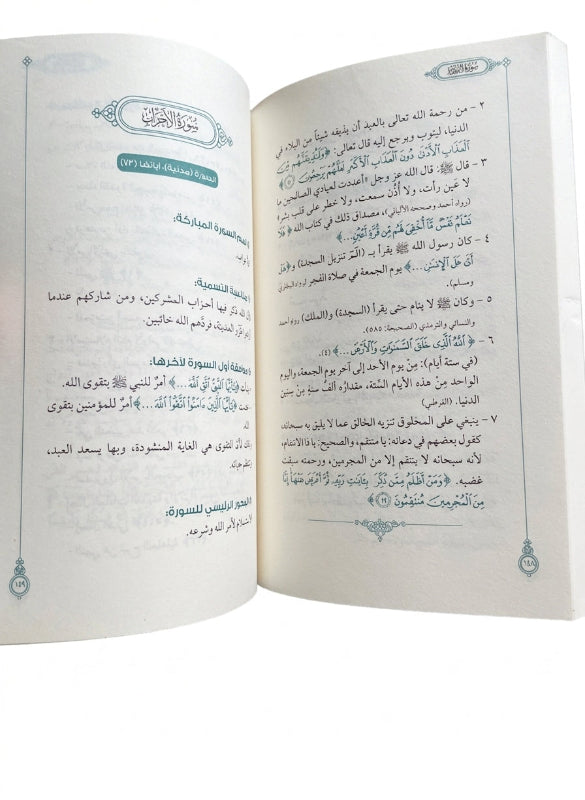 سورة السجدة
٢ - من رحمة الله تعالى بالعبد أن يذيقه شيئاً من البلاء في
الدنيا، ليتوب ويرجع إليه قال تعالى: ﴿وَلَنُذِيقَنَّهُم مِّنَ
الْعَذَابِ الْأَدْنَىٰ دُونَ الْعَذَابِ الْأَكْبَرِ لَعَلَّهُمْ يَرْجِعُونَ﴾
٣ - قال ﷺ: قال الله عز وجل «أعددت لعبادي الصالحين ما
لا عَين رأت، ولا أُذُن سمعت، ولا خطر على قلب بشر»
(رواه أحمد وصححه الألباني)، مصداق ذلك في كتاب الله ﴿فَلَا
تَعْلَمُ نَفْسٌ مَّا أُخْفِيَ لَهُم مِّن قُرَّةِ أَعْيُنٍ...﴾
٤ - كان رسول الله ﷺ يقرأ بـ (الٓمٓ تنزيل السجدة) و﴿هَلْ
أَتَىٰ عَلَى الْإِنسَانِ...﴾ يوم الجمعة في صلاة الفجر (رواه البخاري
ومسلم).
٥ - وكان ﷺ لا ينام حتى يقرأ (السجدة) و(الملك) (رواه أحمد
والنسائي والترمذي (الصحيحة: ٥٨٥)
٦ - ﴿اللَّهُ الَّذِي خَلَقَ السَّمَاوَاتِ وَالْأَرْضَ...﴾ (٤).
(في ستة أيام): مِنْ يوم الأحد إلى آخر يوم الجمعة، واليوم
الواحد مِن هذه الأيام السِّتة، مقدارُه ألفُ سنةٍ مِن سنين
الدنيا. (القرطبي)
٧ - ينبغي على المخلوق تنزيه الخالق عما لا يليق به سبحانه،
كقول بعضهم في دعائه: يا منتقم، والصحيح: يا ذا الانتقام،
لأنه سبحانه لا ينتقم إلا من المجرمين، ورحمته سبقت
غضبه. ﴿وَمَنْ أَظْلَمُ مِمَّن ذُكِّرَ بِآيَاتِ رَبِّهِ ثُمَّ أَعْرَضَ عَنْهَا إِنَّا
مِنَ الْمُجْرِمِينَ مُنتَقِمُونَ ﴿٢٢﴾﴾
١٤٨
سورة الأحزاب
السورة (مدنية)، آياتها (٧٣)
اسم السورة المباركة:
مناسبة التسمية:
الله ذكر فيها أحزاب المشركين، ومن شاركهم عندما
غزو المدينة، فردَّهم الله خائبين.
موافقة أول السورة لآخرها:
﴿يَا أَيُّهَا النَّبِيُّ اتَّقِ اللَّهَ...﴾ أمرٌ للنبي ﷺ بتقوى الله.
﴿يَا أَيُّهَا الَّذِينَ آمَنُوا اتَّقُوا اللَّهَ...﴾ أمرٌ للمؤمنين بتقوى
لأن التقوى هي الغاية المنشودة، وبها يسعد العبد،
المحور الرئيسي للسورة:
الاستسلام لأمر الله وشرعه.
١٤٩